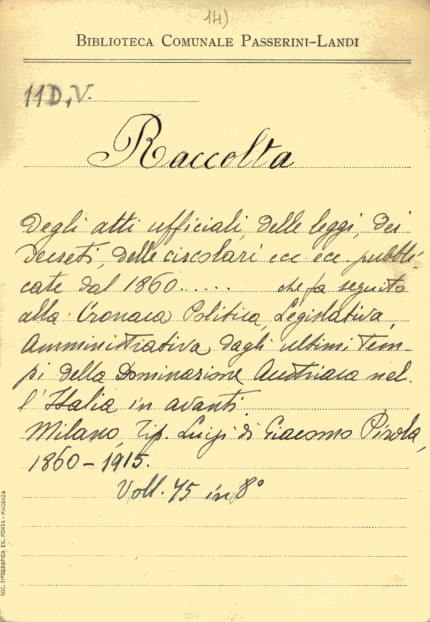 14)
BIBLIOTECA COMUNALE PASSERINI-LANDI
11D.V.
Raccolta
degli atti ufficiali, delle leggi, dei
decreti, delle circolari ecc ecc. pubbli-
cate dal 1860...... che fa seguito
alla Cronaca Politica, Legislativa,
Amministrativa dagli ultimi tem-
pi della Dominazione Austriaca nel-
l'Italia in avanti.
Milano, Tip. Luigi di Giacomo Pirola,
1860-1915.
Voll. 75 in 8°
SOC. TIPOGRAFICA ED. PORTA - PIACENZA